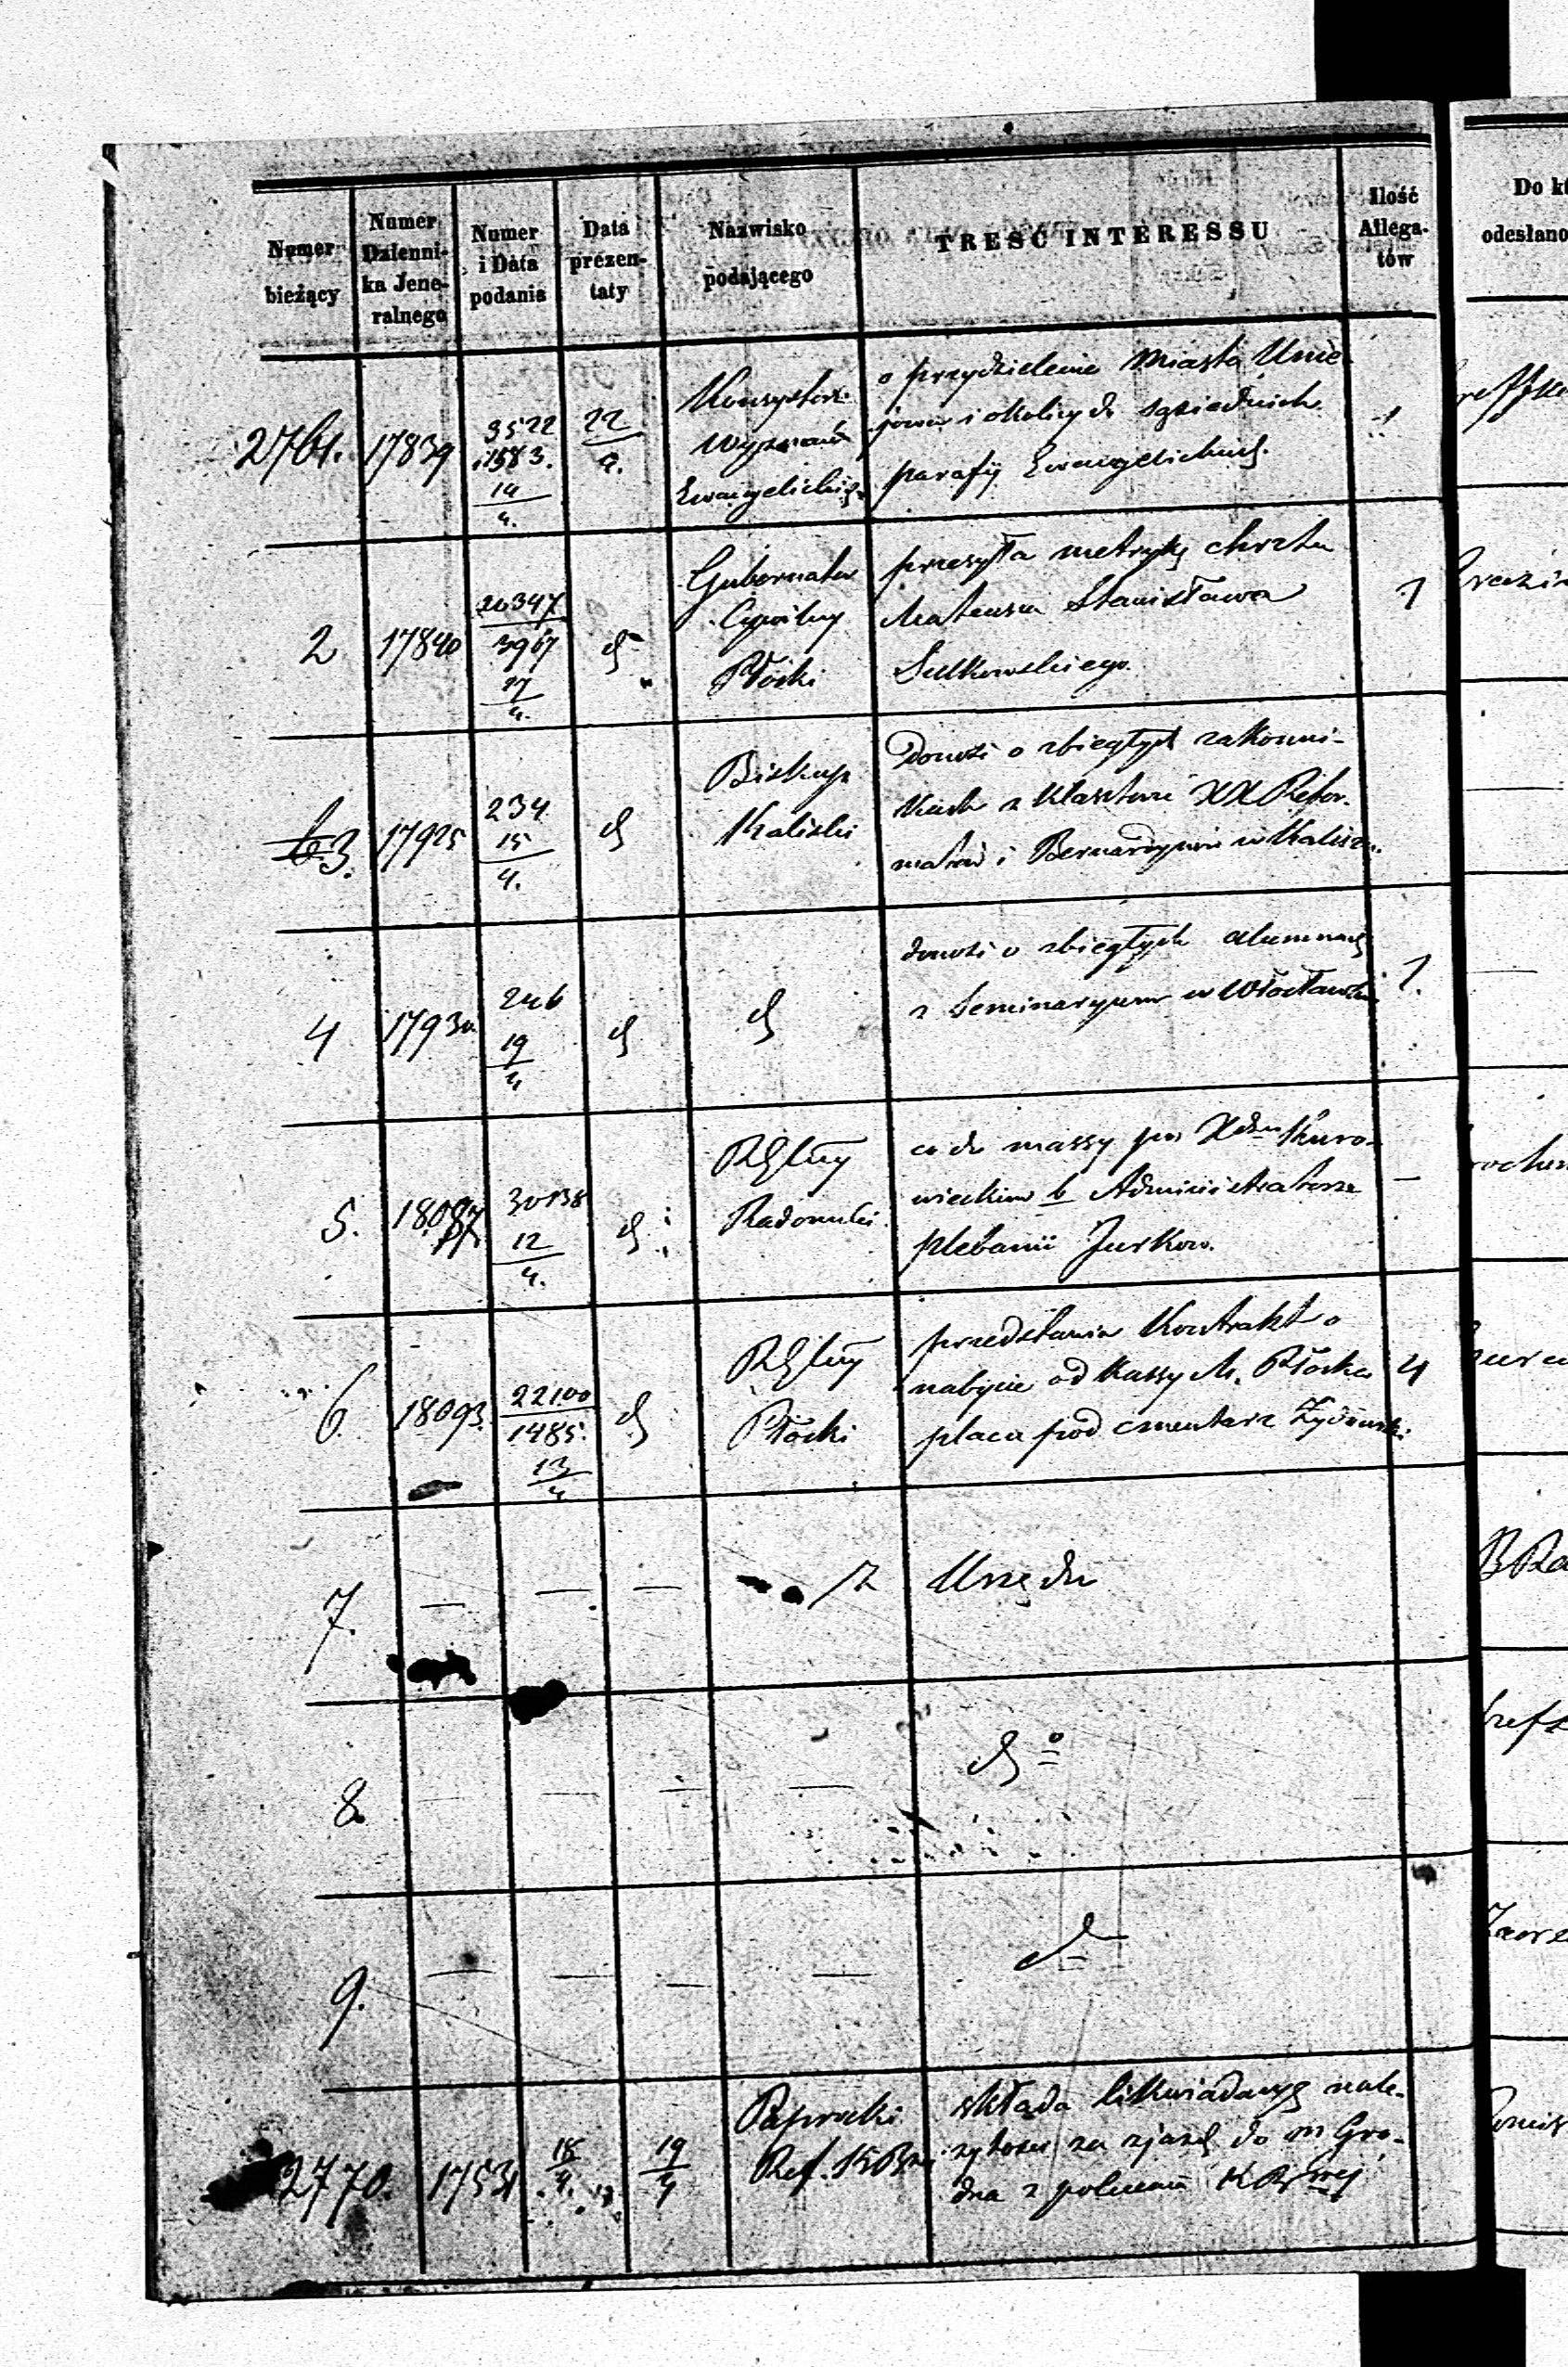 Numer bieżący
Numer Dzienni-ka Jene-ralnego
Numer i Data podania
Data prezen-taty
Nazwisko podającego
TREŚĆ INTERESSU
Ilość Allega-tów
Do
odesłano
2761. 17839
3522
1583.
14
4.
22
4.
Konsystorz
Wyznań
Ewangelickich
o przydzielenie Miasta Unie-
jowa i okolicy do sąsiednich
parafij Ewangelickich.
2 17840
20347
3967
17
4.
d
Gubernator
Cywilny
Płocki
przesyła metrykę chrztu
Mateusza Stanisława
Sulkowskiego.
1
3. 17925
234
15
4.
d
Biskup
Kaliski
Donosi o zbiegłych zakonni-
kach z Klasztoru XX Refor-
matów i Bernardynów w Kaliszu.
4 17930
246
19
4
d
d
donosi o zbiegłych alumnach
z Seminaryum w Włocławku
1.
5. 18087
30138
12
4.
d
Radomski
co do massy po Xdzu Kuro-
wieckim b Administratorze
plebanii Jurkow.
—
6. 18093.
22100
1485.
13
4
d
Płocki
przedstawia Kontrakt o
nabycie od Kassy M. Płocka
placu pod cmentarz Żydowski
4
7. — — — Z Urzędu
8. — — — — do
9. — — — — d
2770. 1753
18
4.
19
4
Paprocki
Ref. KRz
składa likwidacyę nale-
żytości za zjazd do m Gro-
dna z polecenia KRzwej